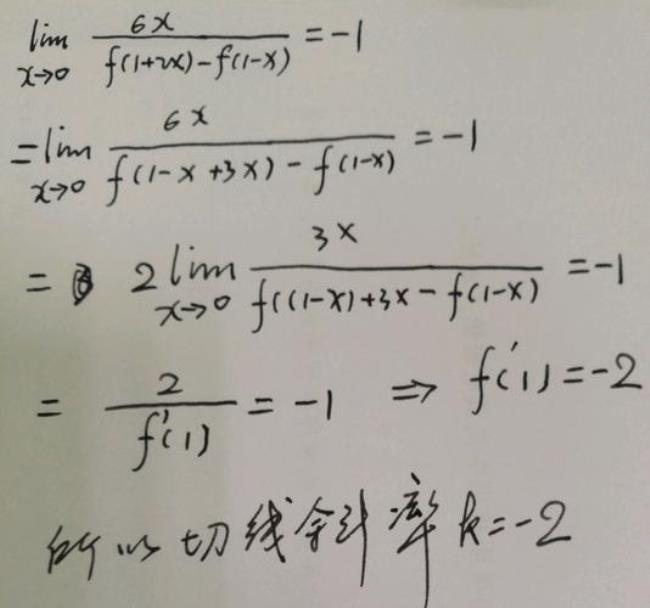 lim x→0 6x / f(1+2x)-f(1-x) = -1
= lim x→0 6x / f(1-x+3x) - f(1-x) = -1
= 2 lim x→0 3x / f((1-x)+3x - f(1-x) = -1
= 2 / f'(1) = -1 ⇒ f'(1) = -2
所以切线斜率 k=-2